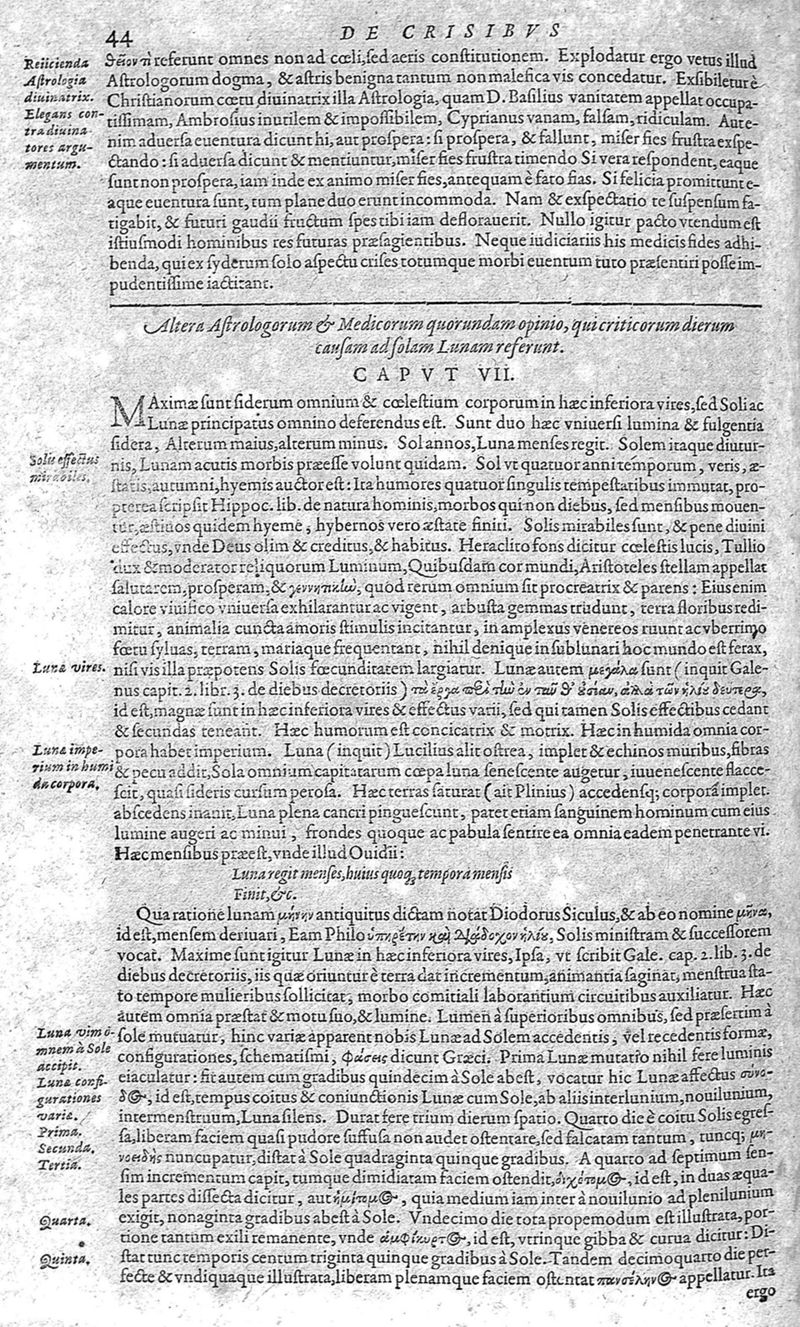 44
DE CRISIBVS
Reiicienda
Astrologia
diuinatrix.
Elegans con-
tra diuina
tores argu-
mentum.
θεῖόν τι referunt omnes non ad cœli, sed aeris constitutionem. Explodatur ergo vetus illud
Astrologorum dogma, & astris benigna tantum non malefica vis concedatur. Exsibiletur è
Christianorum cœtu diuinatrix illa Astrologia, quam D. Basilius vanitatem appellat occupa-
tissimam, Ambrosius inutilem & impossibilem, Cyprianus vanam, falsam, ridiculam. Aut e-
nim aduersa euentura dicunt hi, aut prospera: si prospera, & fallunt, miser fies frustra exspe-
ctando: si aduersa dicunt & mentiuntur, miser fies frustra timendo Si vera respondent, eaque
sunt non prospera, iam inde ex animo miser fies, antequam è fato fias. Si felicia promittunt e-
aque euentura sunt, tum plane duo erunt incommoda. Nam & exspectatio te suspensum fa-
tigabit, & futuri gaudii fructum spes tibi iam deflorauerit. Nullo igitur pacto vtendum est
istiusmodi hominibus res futuras præsagientibus. Neque iudiciariis his medicis fides adhi-
benda, qui ex syderum solo aspectu crises totumque morbi euentum tuto præsentiri posse im-
pudentissime iactitant.
Altera Astrologorum & Medicorum quorundam opinio, qui criticorum dierum
causam ad solam Lunam referunt.
CAPVT VII.
MAximæ sunt siderum omnium & cœlestium corporum in hæc inferiora vires, sed Soli ac
Lunæ principatus omnino deferendus est. Sunt duo hæc vniuersi lumina & fulgentia
sidera, Alterum maius, alterum minus. Sol annos, Luna menses regit. Solem itaque diutur-
Solis effectus
mirabiles.
nis, Lunam acutis morbis præesse volunt quidam. Sol vt quatuor anni temporum, veris, æ-
statis, autumni, hyemis auctor est: Ita humores quatuor singulis tempestatibus immutat, pro-
pterea scripsit Hippoc. lib. de natura hominis, morbos qui non diebus, sed mensibus mouen-
tur, æstiuos quidem hyeme, hybernos vero æstate finiri. Solis mirabiles sunt, & pene diuini
effectus, vnde Deus olim & creditus, & habitus. Heraclito fons dicitur cœlestis lucis, Tullio
dux & moderator reliquorum Luminum, Quibusdam cor mundi, Aristoteles stellam appellat
salutarem, prosperam, & γεννητικὼ, quod rerum omnium sit procreatrix & parens: Eius enim
calore viuifico vniuersa exhilarantur ac vigent, arbusta gemmas trudunt, terra floribus redi-
mitur, animalia cuncta amoris stimulis incitantur, in amplexus venereos ruunt ac vberrimo
fœtu syluas, terram, mariaque frequentant, nihil denique in sublunari hoc mundo est ferax,
Lunæ vires.
nisi vis illa præpotens Solis fœcunditatem largiatur. Lunæ autem μεγάλα sunt (inquit Gale-
nus capit. 2. libr. 3. de diebus decretoriis)
id est, magnæ sunt in hæc inferiora vires & effectus varii, sed qui tamen Solis effectibus cedant
& secundas teneant. Hæc humorum est concicatrix & motrix. Hæc in humida omnia cor-
Lunæ impe-
rium in humi
da corpora.
pora habet imperium. Luna (inquit) Lucilius alit ostrea, implet & echinos muribus, fibras
& pecu addit, Sola omnium capitatarum cœpa luna senescente augetur, iuuenescente flacce-
scit, quasi sideris cursum perosa. Hæc terras saturat (ait Plinius) accedensq; corpora implet.
abscedens inanit, Luna plena cancri pinguescunt, patet etiam sanguinem hominum cum eius
lumine augeri ac minui, frondes quoque ac pabula sentire ea omnia eadem penetrante vi.
Hæc mensibus præest, vnde illud Ouidii:
Luna regit menses, huius quoq, tempora mensis
Finit, &c.
Qua ratione lunam μήνην antiquitus dictam notat Diodorus Siculus, & ab eo nomine μῆνα,
id est, mensem deriuari, Eam Philo ὑπηρέτην καὶ διάδοχον ἡλίου, Solis ministram & successorem
vocat. Maxime sunt igitur Lunæ in hæc inferiora vires, Ipsa, vt scribit Gale. cap. 2. lib. 3. de
diebus decretoriis, iis quæ oriuntur è terra dat incrementum, animantia saginat, menstrua sta-
to tempore mulieribus sollicitat, morbo comitiali laborantium circuitibus auxiliatur. Hæc
autem omnia præstat & motu suo, & lumine. Lumen à superioribus omnibus, sed præsertim à
Luna vim o-
mnem à Sole
accipit.
sole mutuatur, hinc variæ apparent nobis Lunæ ad Solem accedentis, vel recedentis formæ,
configurationes, schematismi, φάσεις dicunt Græci. Prima Lunæ mutatio nihil fere luminis
Lunæ confi-
gurationes
variæ.
Prima.
Secunda.
Tertia.
eiaculatur: fit autem cum gradibus quindecim à Sole abest, vocatur hic Lunæ affectus σύνο-
δος, id est, tempus coitus & coniunctionis Lunæ cum Sole, ab aliis interlunium, nouilunium,
intermenstruum, Luna silens. Durat fere trium dierum spatio. Quarto die è coitu Solis egres-
sa, liberam faciem quasi pudore suffusa non audet ostentare, sed falcatam tantum, tuncq; μη-
νοειδὴς nuncupatur, distat à Sole quadraginta quinque gradibus. A quarto ad septimum sen-
sim incrementum capit, tumque dimidiatam faciem ostendit, διχότομος, id est, in duas æqua-
les partes dissecta dicitur, aut ἡμίτομος, quia medium iam inter à nouilunio ad plenilunium
Quarta.
exigit, nonaginta gradibus abest à Sole. Vndecimo die tota propemodum est illustrata, por-
tione tantum exili remanente, vnde ἀμφίκυρτος, id est, vtrinque gibba & curua dicitur: Di-
Quinta.
stat tunc temporis centum triginta quinque gradibus à Sole. Tandem decimoquarto die per-
fecte & vndiquaque illustrata, liberam plenamque faciem ostentat πανσέληνος appellatur. Ita
ergo